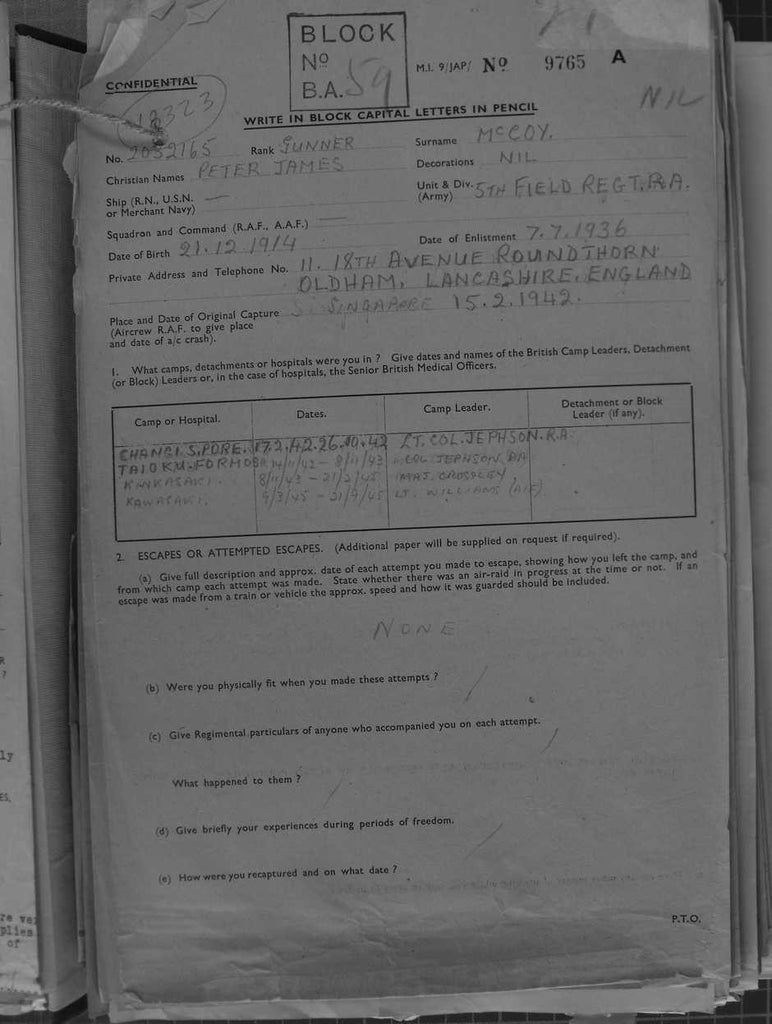 BLOCK
Nº
B.A. 59
M.I. 9/JAP/ Nº 9765 A
CONFIDENTIAL
NIL
WRITE IN BLOCK CAPITAL LETTERS IN PENCIL
No. 2052165 Rank GUNNER Surname McCOY.
Christian Names PETER JAMES Decorations NIL
Ship (R.N., U.S.N. — Unit & Div. 5TH FIELD REGT. R.A.
or Merchant Navy) (Army)
Squadron and Command (R.A.F., A.A.F.) —
Date of Birth 21.12.1914 Date of Enlistment 7.7.1936
Private Address and Telephone No. 11. 18TH AVENUE ROUNDTHORN
OLDHAM, LANCASHIRE. ENGLAND
Place and Date of Original Capture SINGAPORE 15.2.1942.
(Aircrew R.A.F. to give place
and date of a/c crash).
1. What camps, detachments or hospitals were you in ? Give dates and names of the British Camp Leaders, Detachment
(or Block) Leaders or, in the case of hospitals, the Senior British Medical Officers.
Camp or Hospital. Dates. Camp Leader. Detachment or Block
Leader (if any).
CHANGI. S.PORE. 17.2.42. 26.10.42 LT. COL. JEPHSON. R.A.
TAIOKU. FORMOSA 14/11/42 - 8/11/43 COL. JEPHSON RA
KINKASAKI. 8/11/43 - 21/2/45 MAJ. CROSSLEY,
KAWASAKI. 9/3/45 - 31/9/45 LT. WILLIAMS (AIF)
2. ESCAPES OR ATTEMPTED ESCAPES. (Additional paper will be supplied on request if required).
(a) Give full description and approx. date of each attempt you made to escape, showing how you left the camp, and
from which camp each attempt was made. State whether there was an air-raid in progress at the time or not. If an
escape was made from a train or vehicle the approx. speed and how it was guarded should be included.
NONE
(b) Were you physically fit when you made these attempts ? /
(c) Give Regimental particulars of anyone who accompanied you on each attempt. /
What happened to them ? /
(d) Give briefly your experiences during periods of freedom. /
(e) How were you recaptured and on what date ?
P.T.O.